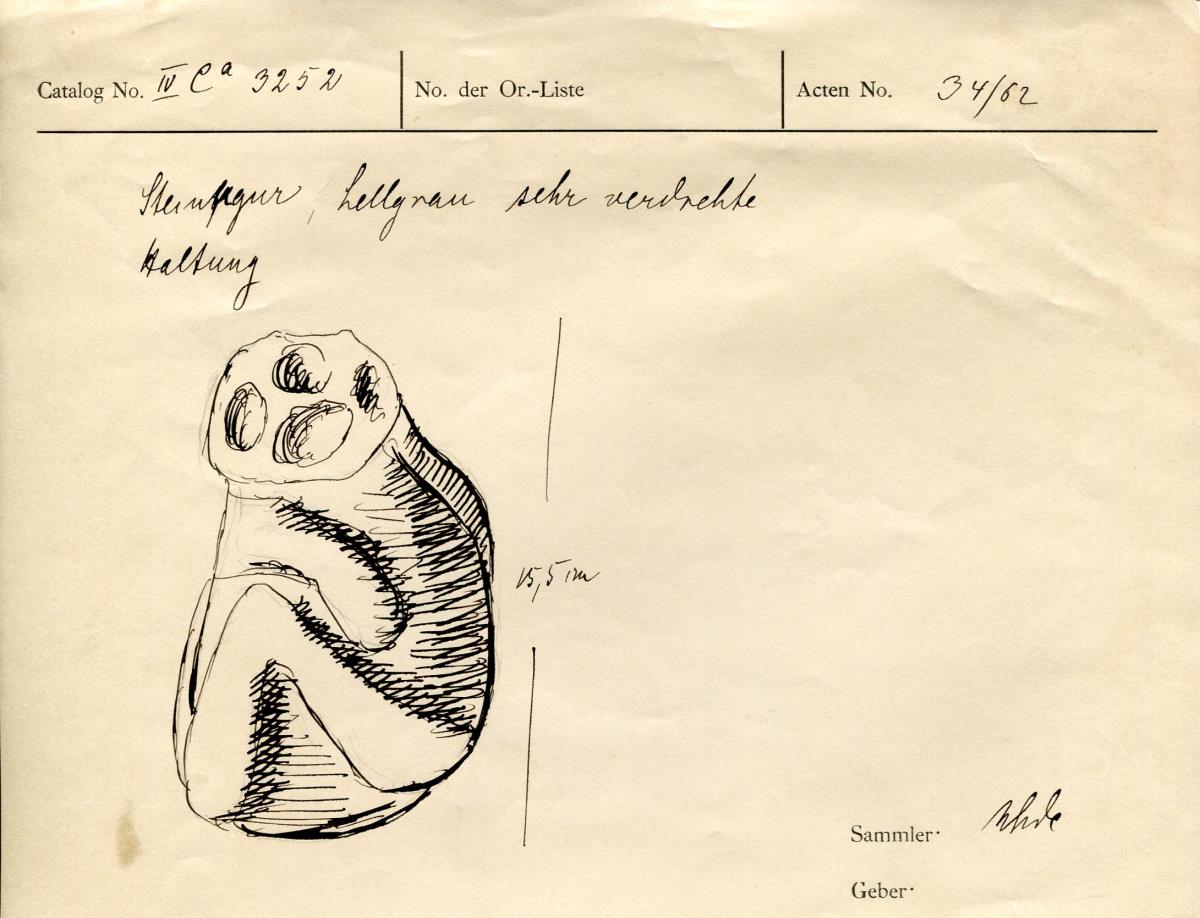 Catalog No. IV Ca 3252 No. der Or.-Liste Acten No. 34/62
Steinfigur, hellgrau sehr verdrehte
Haltung
15,5 cm
Sammler: Uhde
Geber: